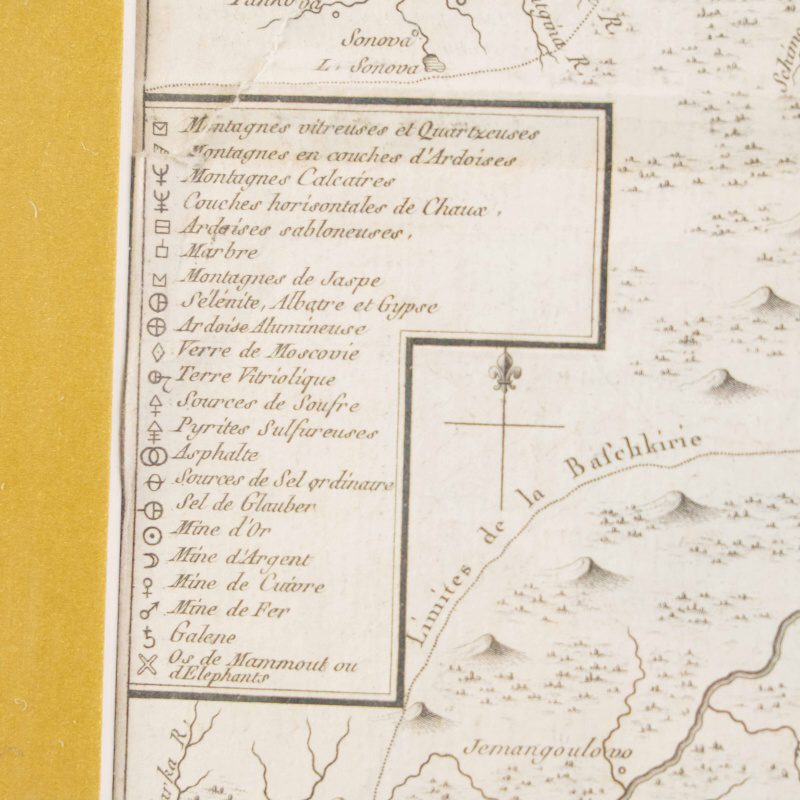 Sonova
L. Sonova
R.
R.
Montagnes vitreuses et Quartzeuses
Montagnes en couches d'Ardoises
Montagnes Calcaires
Couches horisontales de Chaux,
Ardoises sabloneuses,
Marbre
Montagnes de Jaspe
Sélénite, Albatre et Gypse
Ardoise Alumineuse
Verre de Moscovie
Terre Vitriolique
Sources de Soufre
Pyrites Sulfureuses
Asphalte
Sources de Sel ordinaire
Sel de Glauber
Mine d'Or
Mine d'Argent
Mine de Cuivre
Mine de Fer
Galene
Os de Mammout ou
d'Elephants
Limites de la Baschkirie
Jemangoulowo
R.